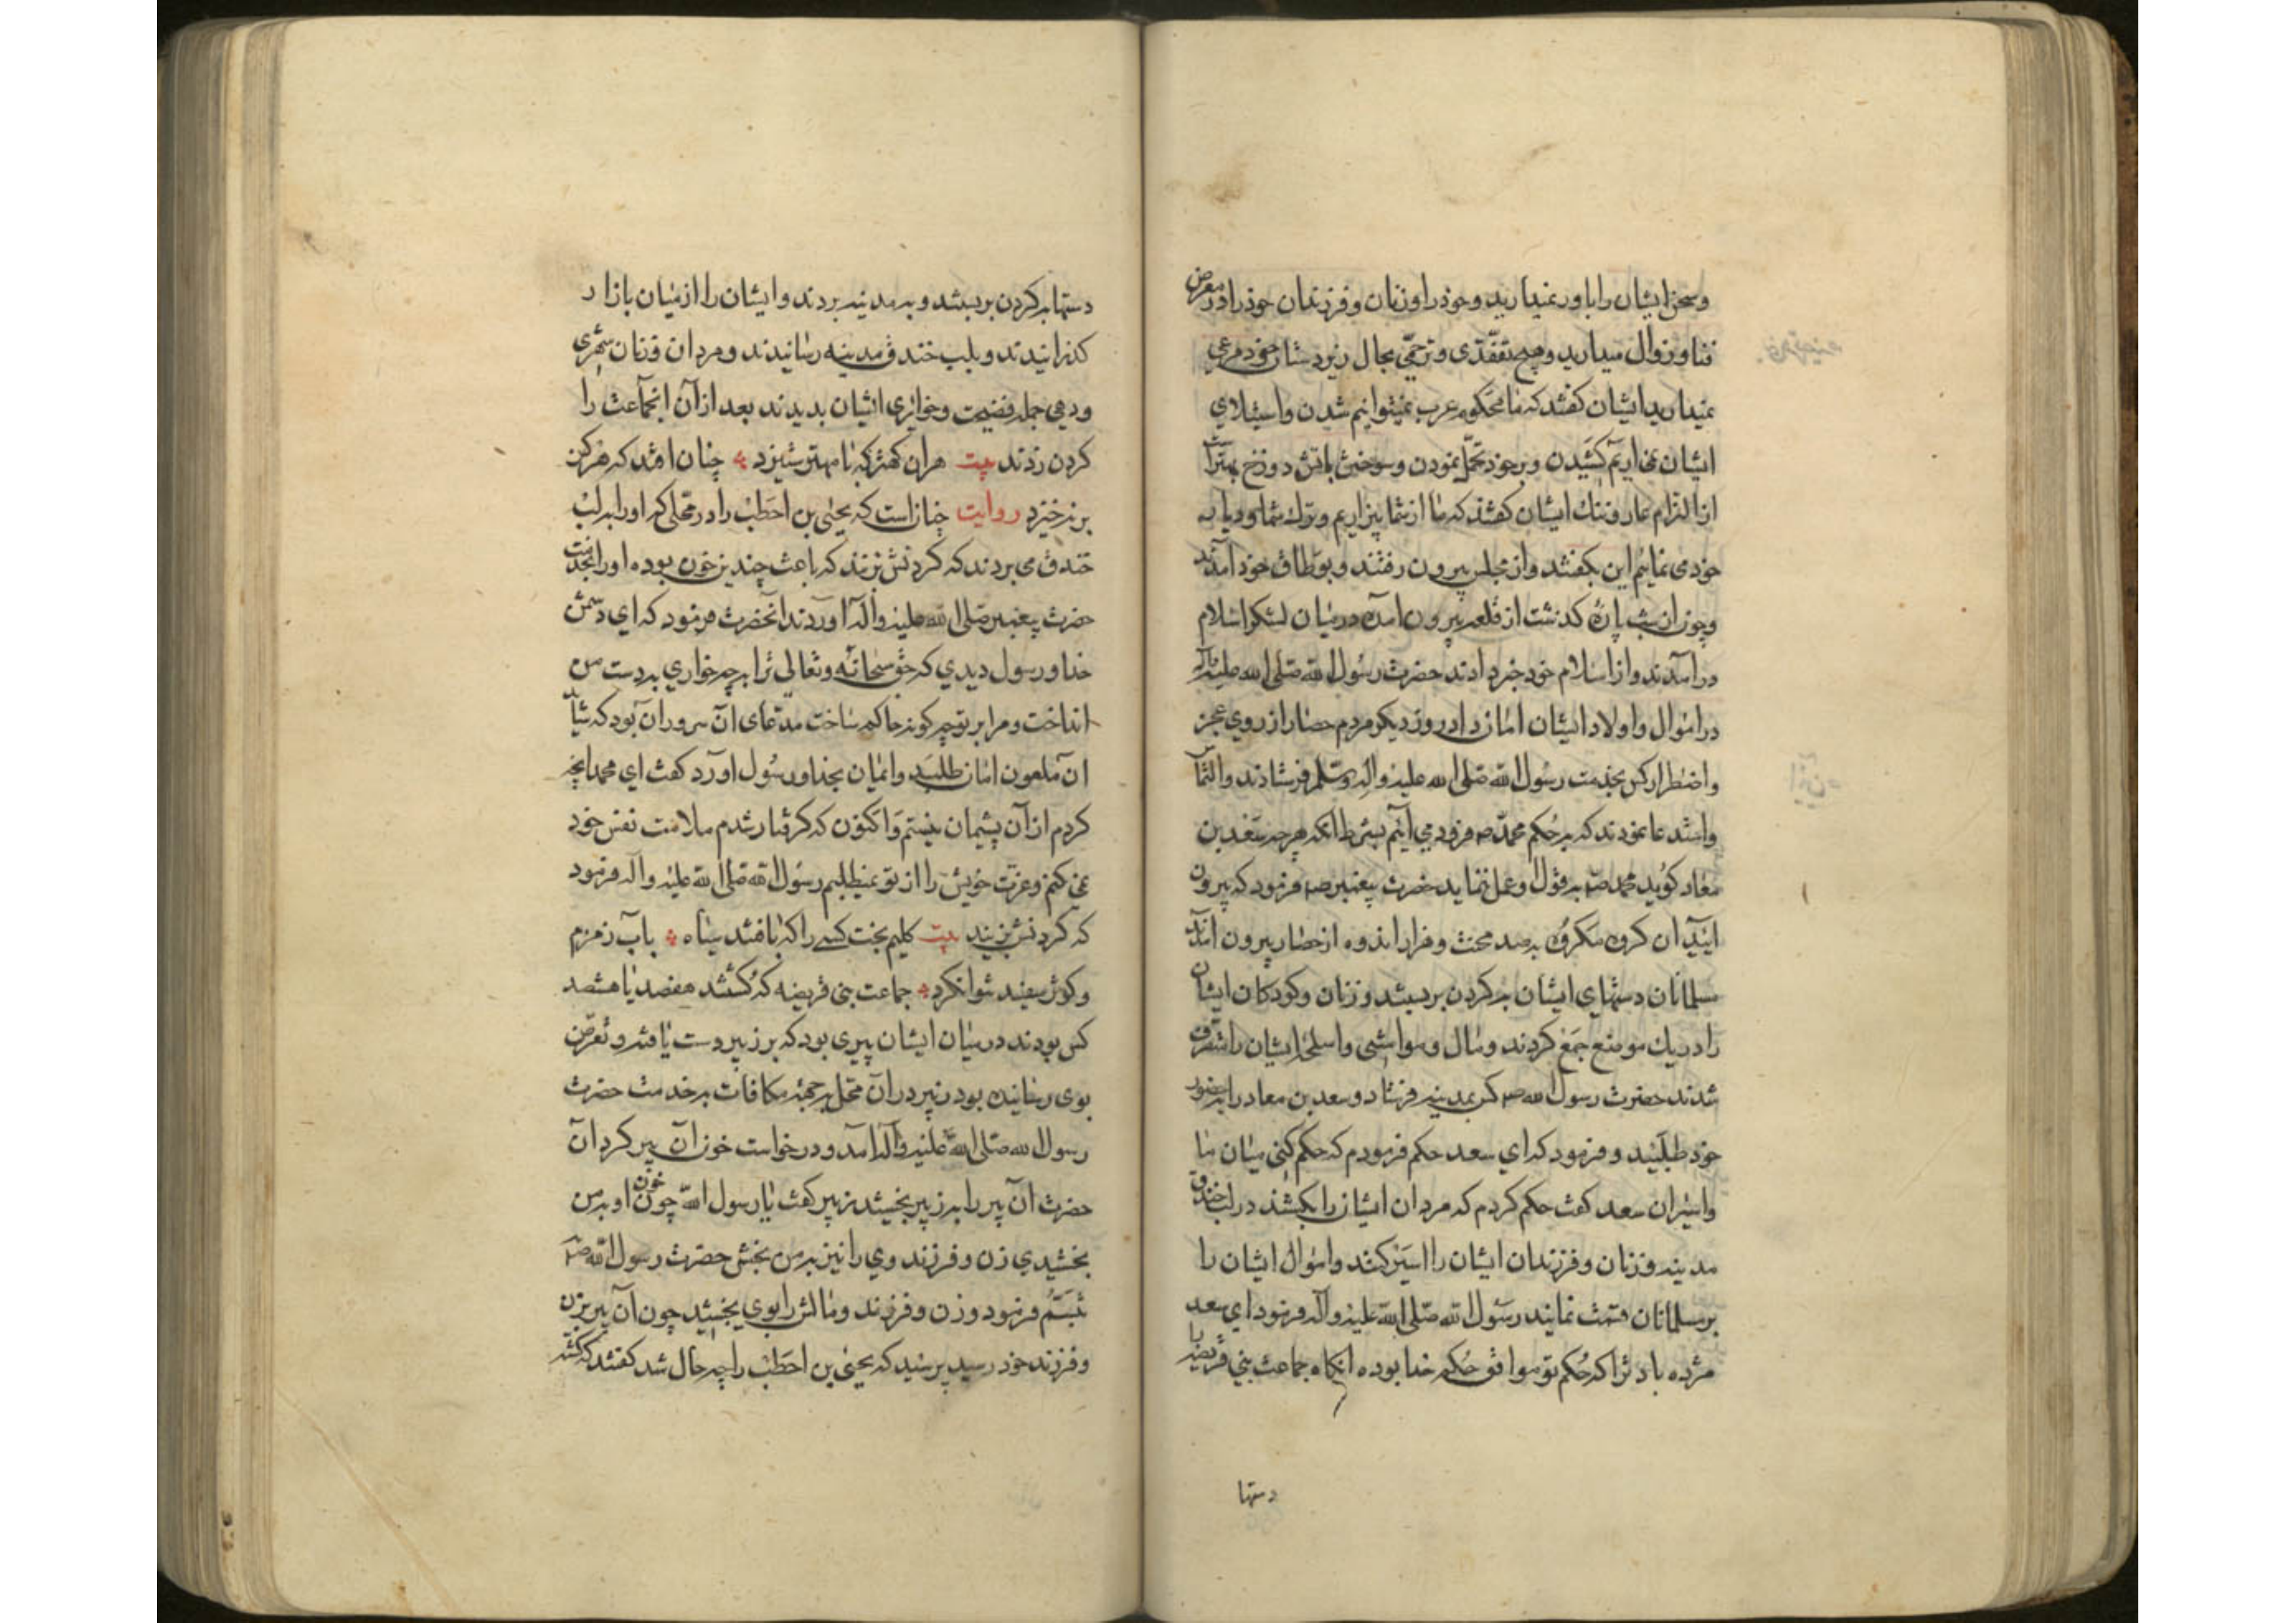 وسخن ایشان را باور نمیدارید وخود را وزنان وفرزندان خود را در معرض
فنا وزوال میدارید وهیچ تفقّدی وترحمّی بحال زیردستان خود مرعی
نمیدارید ایشان کفتند که ما محکوم عرب نمیتوانیم شدن واستیلای
ایشان نمی اریم کشیدن وبرخود تحمّل نمودن وسوختن باتش دوزخ بهتر است
از التزام عار وننک ایشان کفتند که ما از شما بیزاریم وترک شما ودیار
خود می نمایم این بکفتند واز مجلس بیرون رفتند وبوطاق خود آمدند
وچون از شب پارهٔ کذشت از قلعه بیرون امده در میان لشکر اسلام
درآمدند واز اسلام خود خبر دادند حضرت رسول الله صلی الله علیه وآله
در اموال واولاد ایشان امان داد روز دیکر مردم حصار از روی عجز
واضطرار کس بخدمت رسول الله صلی الله علیه وآله وسلم فرستادند والتماس
واستدعا نمودند که بر حُکم محمّد ص فرود می آئیم بشرط انکه هرچه سَعْد بن
معاد کوید محمد ص بقول او عمل نماید حضرت پیغمبر ص فرمود که بیرون
ایید آن کروه مکروُه بصد محنت وفرار اندوه از حصار بیرون آمدند
مسلمانان دستهای ایشان بر کردن بربستند وزنان وکودکان ایشان
را در یک موضع جَمَع کردند ومال ومواشی واسلحهٔ ایشان را متصرف
شدند حضرت رسول الله ص کس بمدینه فرستاد وسعد بن معاد را بحضور
خود طلبید وفرمود که ای سعد حکم فرمودم که حکم کنی میان ما
واسیران سعد کفت حکم کردم که مردان ایشان را بکشند در لب خندق
مدینه وزنان وفرزندان ایشان را اسَیر کنند واموال ایشان را
بر مسلمانان قسمت نمایند رسول الله صلی الله علیه وآله فرمود ای سعد
مژده باد ترا که حُکم تو موافق حُکم خدا بوده انکاه جماعت بنی قریضه را
دستها
دستها بر کردن بربستند وبه مدینه بردند وایشان را از میان بازار
کذرانیدند وبلب خندق مدینه رسانیدند ومردان وزنان شهری
ودهی جمله فضیحت وخواری ایشان بدیدند بعد از آن انجماعت را
کردن زدند بیت هران کهتر که با مهتر ستیزد چنان افتد که هرکز
بر نخیزد روایت چنان است که یحیی بن احَطَبْ را در محلی که او را بر لب
خندق می بردند که کردنش بزنند که باعث چندین خون بوده او را بخدمت
حضرت پیغمبر صلی الله علیه وآله آوردند آنحضرت فرمود که ای دشمن
خدا ورسول دیدی که حق سبحانه وتعالی ترا بچه خواری بدست من
انداخت ومرا بر تو چه کونه حاکم ساخت مدعای آن سرور آن بود که شاید
آن ملعون امان طلبَد وایمان بخدا ورسُول اورد کفت ای محمد انچه
کردم از آن پشیمان نیستم وَاکنون که کرفتار شدم ملامت نفس خود
نمی کنم وعزت خویش را از تو نمیطلبم رسول الله صلی الله علیه وآله فرمود
که کردنش بزنید بیت کلیم بخت کسے را که بافتند سیاه باب زمزم
وکوثر سفید نتوان کرد جماعت بنی قریضه که کشتند هفصد یا هشتصد
کس بودند در میان ایشان پیری بود که بر زبیر دست یافته وتعرّض
بوی رسانیده بود زبیر در آن محَل بر جهة مکافات بر خدمت حضرت
رسول الله صلی الله علیه وآله امد ودرخواست خون آن پیر کرد آن
حضرت آن پیر را بر زبیر بخشید زبیر کفت یا رسول الله چون خون او بمن
بخشیدی زن وفرزند وی را نیز بمن بخش حضرت رسول الله ص
تبسَّمُ فرمود وزن وفرزند ومالش را بوی بخشید چون آن پیر بزن
وفرزند خود رسید پرسید که یحیی بن احطَبْ را چه حال شد کفتند که کشته